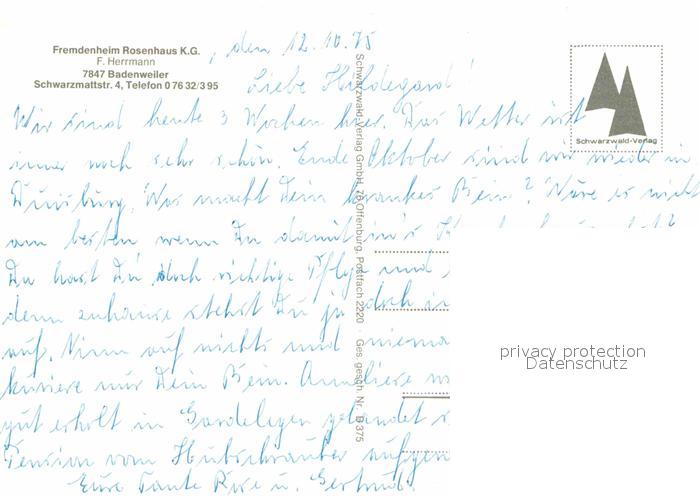 Fremdenheim Rosenhaus K.G.
F. Herrmann
7847 Badenweiler
Schwarzmattstr. 4, Telefon 0 76 32/3 95
, den 12.10.75
Liebe Hildegard!
Wir sind heute 3 Wochen hier. Das Wetter ist
imer noch sehr schön. Ende Oktober sind wir wieder in
Duisburg. Was macht Dein krankes Bein? Wäre es nicht
am besten wenn Du damit in's
Du hast Du doch richtige Pflege und
denn zuhause stehst Du ja doch
auf. Nimm auf nichts und
kuriere nur Dein Bein. Anneliese
gut erholt in Gardelegen gelandet
Pension vom Hubschrauber
Eure Tante Rose u. Gertrud.
Schwarzwald-Verlag
Schwarzwald-Verlag GmbH, 76 Offenburg, Postfach 2220 Ges. gesch. Nr. B 375
privacy protection
Datenschutz